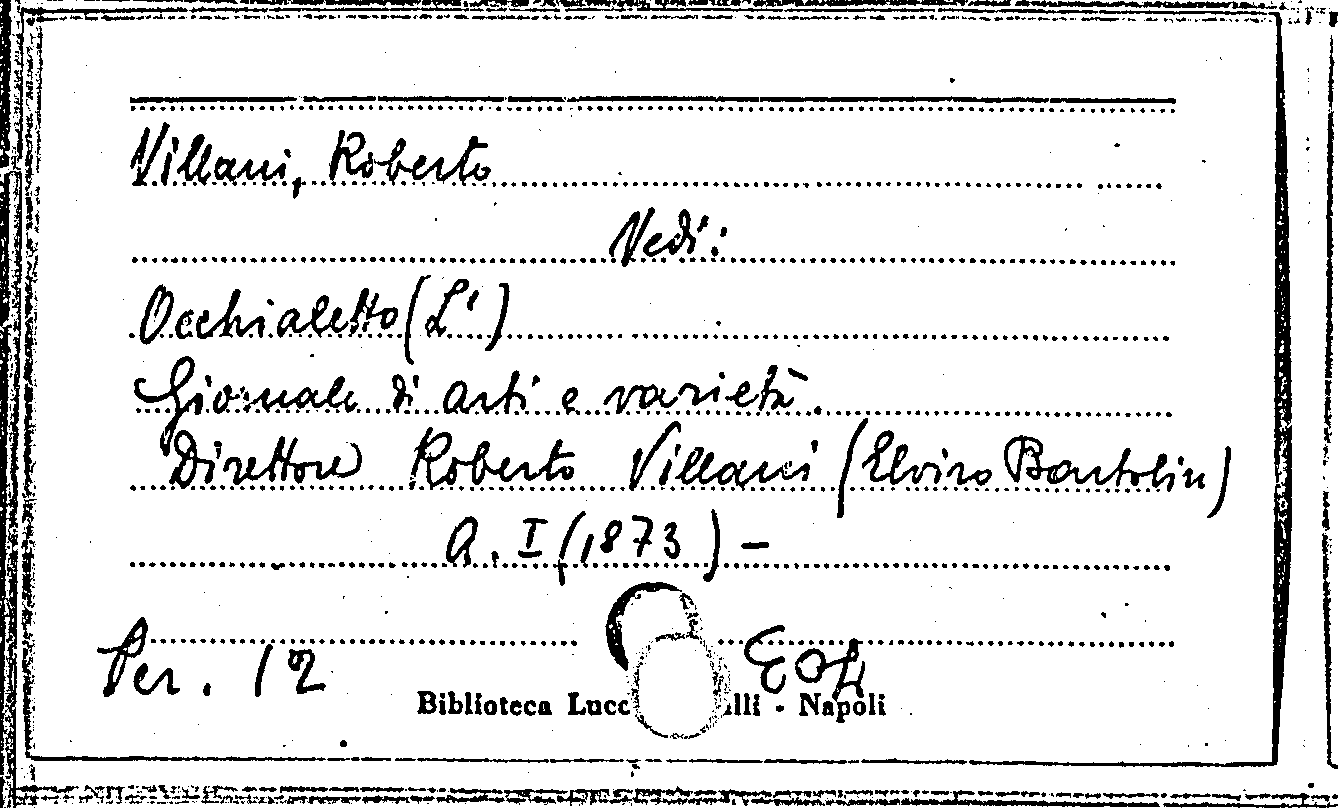 Villani, Roberto
Vedi:
Occhialetto (L')
Giornale di arti e varietà.
Direttore Roberto Villani (Elviro Bartolin)
A. I (1873) –
Per. 12
E04
Biblioteca Lucc alli - Napoli